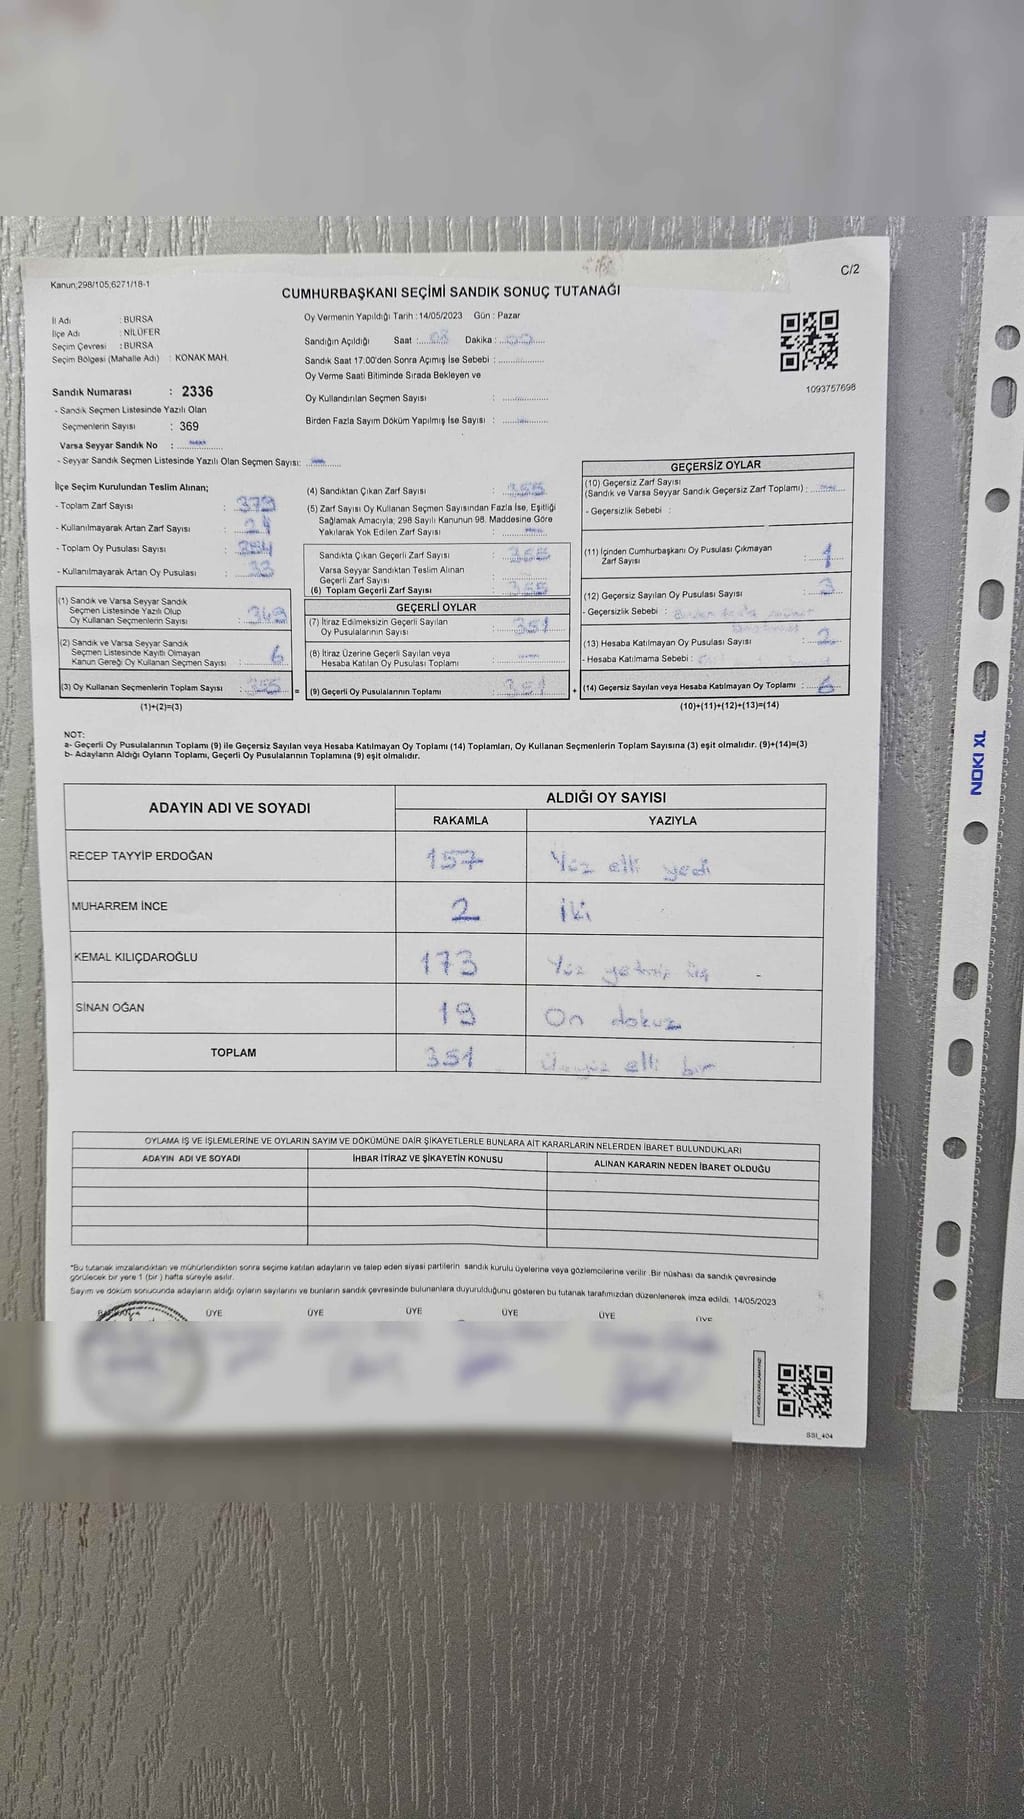 C/2
Kanun;298/105,6271/18-1
CUMHURBAŞKANI SEÇİMİ SANDIK SONUÇ TUTANAĞI
İl Adı : BURSA
İlçe Adı : NİLÜFER
Seçim Çevresi : BURSA
Seçim Bölgesi (Mahalle Adı) : KONAK MAH.
Sandık Numarası : 2336
- Sandık Seçmen Listesinde Yazılı Olan
Seçmenlerin Sayısı : 369
Varsa Seyyar Sandık No :
- Seyyar Sandık Seçmen Listesinde Yazılı Olan Seçmen Sayısı:
Oy Vermenin Yapıldığı Tarih :14/05/2023 Gün : Pazar
Sandığın Açıldığı Saat : 08 Dakika : 00
Sandık Saat 17:00'den Sonra Açılmış İse Sebebi :
Oy Verme Saati Bitiminde Sırada Bekleyen ve
Oy Kullandırılan Seçmen Sayısı :
Birden Fazla Sayım Döküm Yapılmış İse Sayısı :
1093757698
İlçe Seçim Kurulundan Teslim Alınan;
- Toplam Zarf Sayısı : 379
- Kullanılmayarak Artan Zarf Sayısı : 24
- Toplam Oy Pusulası Sayısı :
- Kullanılmayarak Artan Oy Pusulası : 33
(1) Sandık ve Varsa Seyyar Sandık
Seçmen Listesinde Yazılı Olup
Oy Kullanan Seçmenlerin Sayısı : 349
(2) Sandık ve Varsa Seyyar Sandık
Seçmen Listesinde Kayıtlı Olmayan
Kanun Gereği Oy Kullanan Seçmen Sayısı : 6
(3) Oy Kullanan Seçmenlerin Toplam Sayısı : 355 =
(1)+(2)=(3)
(4) Sandıktan Çıkan Zarf Sayısı : 355
(5) Zarf Sayısı Oy Kullanan Seçmen Sayısından Fazla İse, Eşitliği
Sağlamak Amacıyla; 298 Sayılı Kanunun 98. Maddesine Göre
Yakılarak Yok Edilen Zarf Sayısı :
Sandıkta Çıkan Geçerli Zarf Sayısı : 355
Varsa Seyyar Sandıktan Teslim Alınan
Geçerli Zarf Sayısı :
(6) Toplam Geçerli Zarf Sayısı : 355
GEÇERLİ OYLAR
(7) İtiraz Edilmeksizin Geçerli Sayılan
Oy Pusulalarının Sayısı : 351
(8) İtiraz Üzerine Geçerli Sayılan veya
Hesaba Katılan Oy Pusulası Toplamı :
(9) Geçerli Oy Pusulalarının Toplamı : 351 +
GEÇERSİZ OYLAR
(10) Geçersiz Zarf Sayısı
(Sandık ve Varsa Seyyar Sandık Geçersiz Zarf Toplamı) :
- Geçersizlik Sebebi :
(11) İçinden Cumhurbaşkanı Oy Pusulası Çıkmayan
Zarf Sayısı : 1
(12) Geçersiz Sayılan Oy Pusulası Sayısı : 3
- Geçersizlik Sebebi :
(13) Hesaba Katılmayan Oy Pusulası Sayısı : 2
- Hesaba Katılmama Sebebi :
(14) Geçersiz Sayılan veya Hesaba Katılmayan Oy Toplamı : 6
(10)+(11)+(12)+(13)=(14)
NOT:
a- Geçerli Oy Pusulalarının Toplamı (9) ile Geçersiz Sayılan veya Hesaba Katılmayan Oy Toplamı (14) Toplamları, Oy Kullanan Seçmenlerin Toplam Sayısına (3) eşit olmalıdır. (9)+(14)=(3)
b- Adayların Aldığı Oyların Toplamı, Geçerli Oy Pusulalarının Toplamına (9) eşit olmalıdır.
ADAYIN ADI VE SOYADI ALDIĞI OY SAYISI
RAKAMLA YAZIYLA
RECEP TAYYİP ERDOĞAN 157 Yüz elli yedi
MUHARREM İNCE 2 İki
KEMAL KILIÇDAROĞLU 173 Yüz yetmiş üç
SİNAN OĞAN 19 On dokuz
TOPLAM 351 Üçyüz elli bir
OYLAMA İŞ VE İŞLEMLERİNE VE OYLARIN SAYIM VE DÖKÜMÜNE DAİR ŞİKAYETLERLE BUNLARA AİT KARARLARIN NELERDEN İBARET BULUNDUKLARI
ADAYIN ADI VE SOYADI İHBAR İTİRAZ VE ŞİKAYETİN KONUSU ALINAN KARARIN NEDEN İBARET OLDUĞU
*Bu tutanak imzalandıktan ve mühürlendikten sonra seçime katılan adayların ve talep eden siyasi partilerin sandık kurulu üyelerine veya gözlemcilerine verilir. Bir nüshası da sandık çevresinde
görülecek bir yere 1 (bir) hafta süreyle asılır.
Sayım ve döküm sonucunda adayların aldığı oyların sayılarını ve bunların sandık çevresinde bulunanlara duyurulduğunu gösteren bu tutanak tarafımızdan düzenlenerek imza edildi. 14/05/2023
ÜYE ÜYE ÜYE ÜYE ÜYE ÜYE
SSI_404
NOKI XL